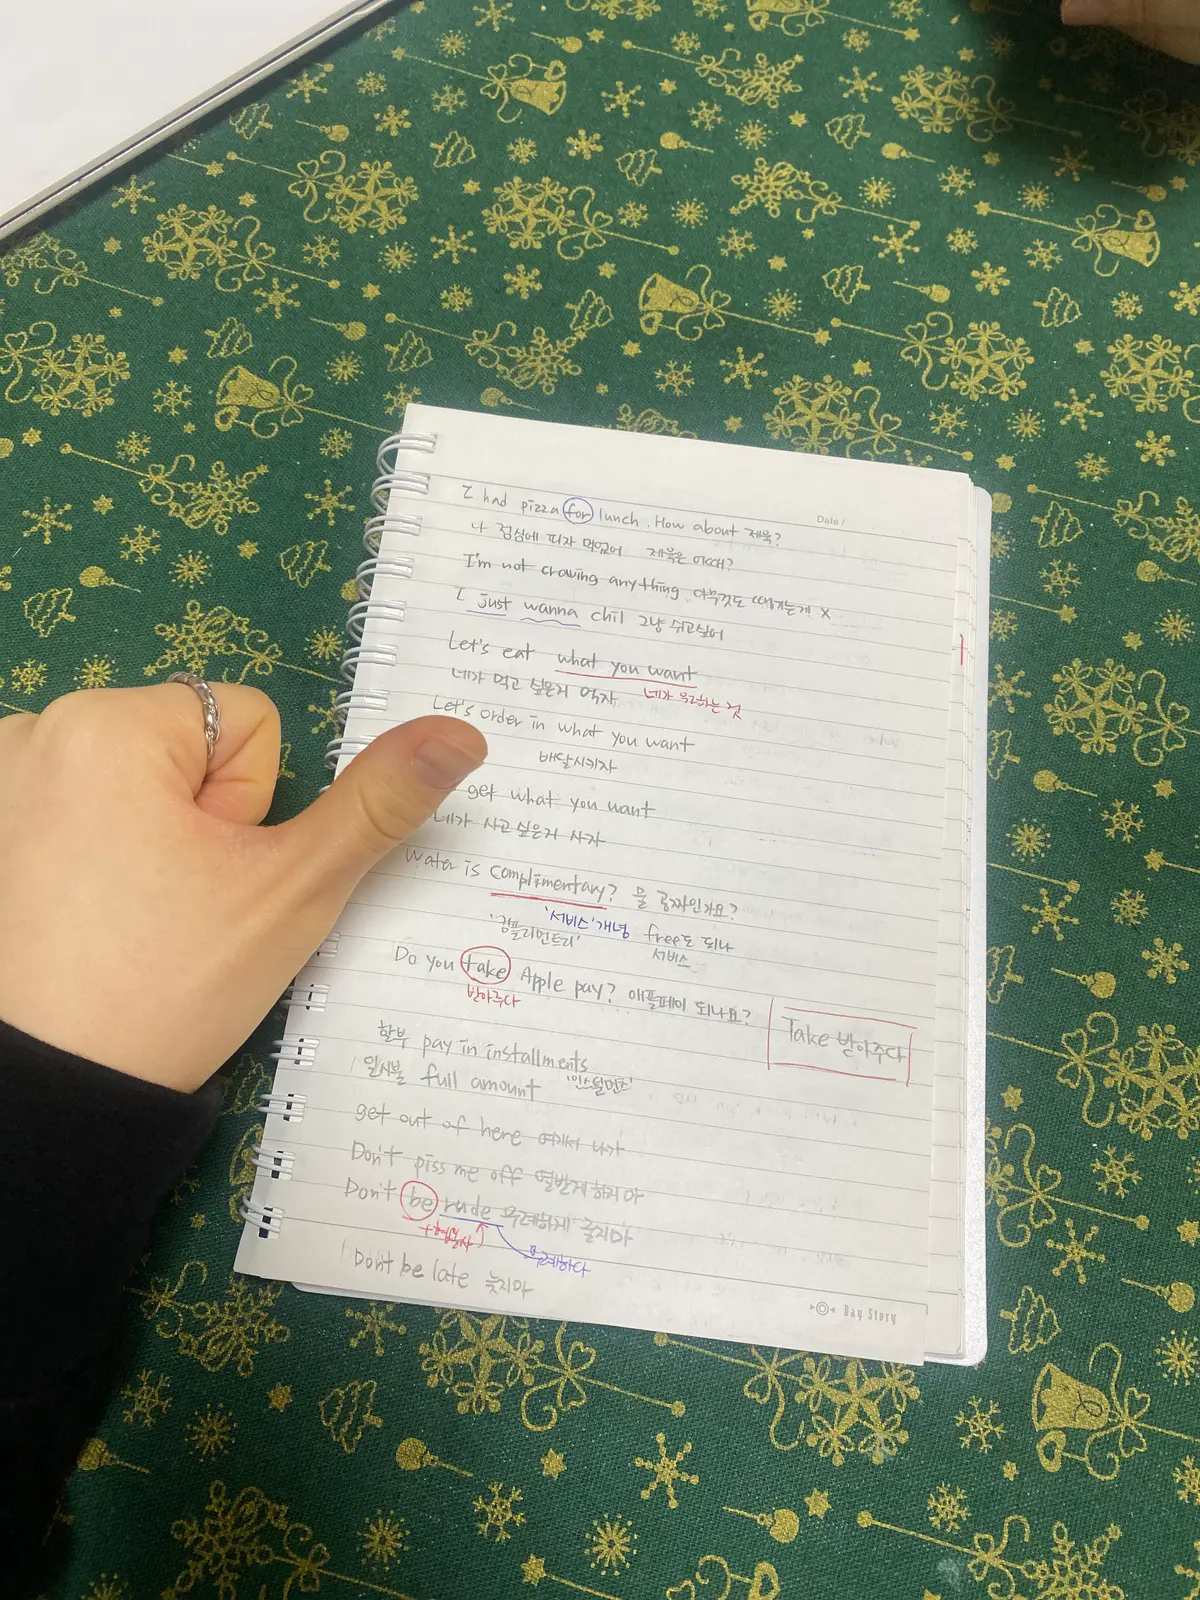 Date /
I had pizza for lunch. How about 제육?
나 점심에 피자 먹었어 제육은 어때?
I'm not craving anything. 아무것도 땡기는게 X
I just wanna chil 그냥 쉬고싶어
Let's eat what you want
네가 먹고 싶은거 먹자 네가 원하는 것
Let's order in what you want
배달시키자
get what you want
네가 사고 싶은거 사자
Water is complimentary? 물 공짜인가요?
'컴플리먼트리' '서비스' 개념 free도 되나
서비스
Do you take Apple pay? 애플페이 되나요?
받아주다
Take 받아주다
할부 pay in installments
일시불 full amount '인스톨먼츠'
get out of here 여기서 나가
Don't piss me off 열받게 하지마
Don't be rude 무례하게 굴지마
+형용사 무례하다
Don't be late 늦지마
Day Story